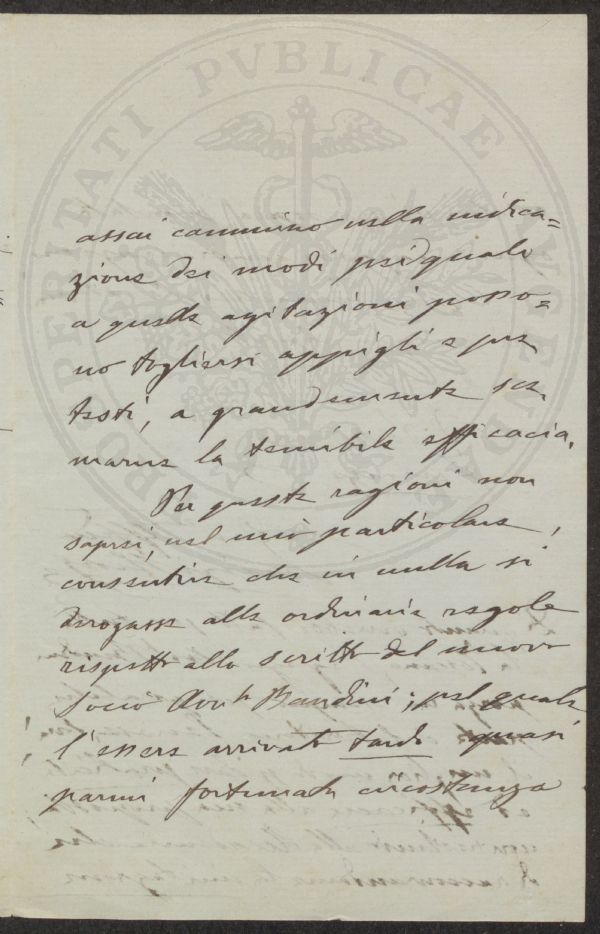 PROSPERITATI PVBLICAE AVGENDAE
assai cammino nella indica=
zione dei modi pei quali
a queste agitazioni posso=
no togliersi appigli e pre
testi, a grandemente sce
marne la temibile efficacia.
Per queste ragioni non
saprei, nel mio particolare,
consentire che in nulla si
derogasse alle ordinarie regole
rispetto allo scritto del nuovo
Socio Avv.to Bandini; pel quale
l'essere arrivato tardi quasi
parmi fortunata circostanza